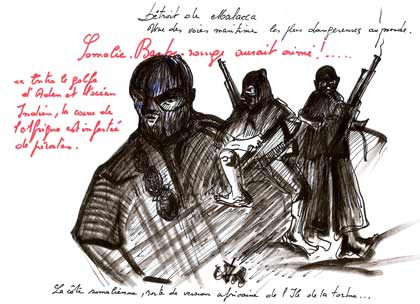 Détroit de Malacca
Une des voies maritime les plus dangereuses au monde.
Somalie. Barbe-rouge aurait aimé !.....
"" Entre le golfe
d'Aden et l'océan
Indien, la corne de
l'Afrique est infestée
de pirates.
La côte somalienne, sorte de version africaine de l'Ile de la tortue...